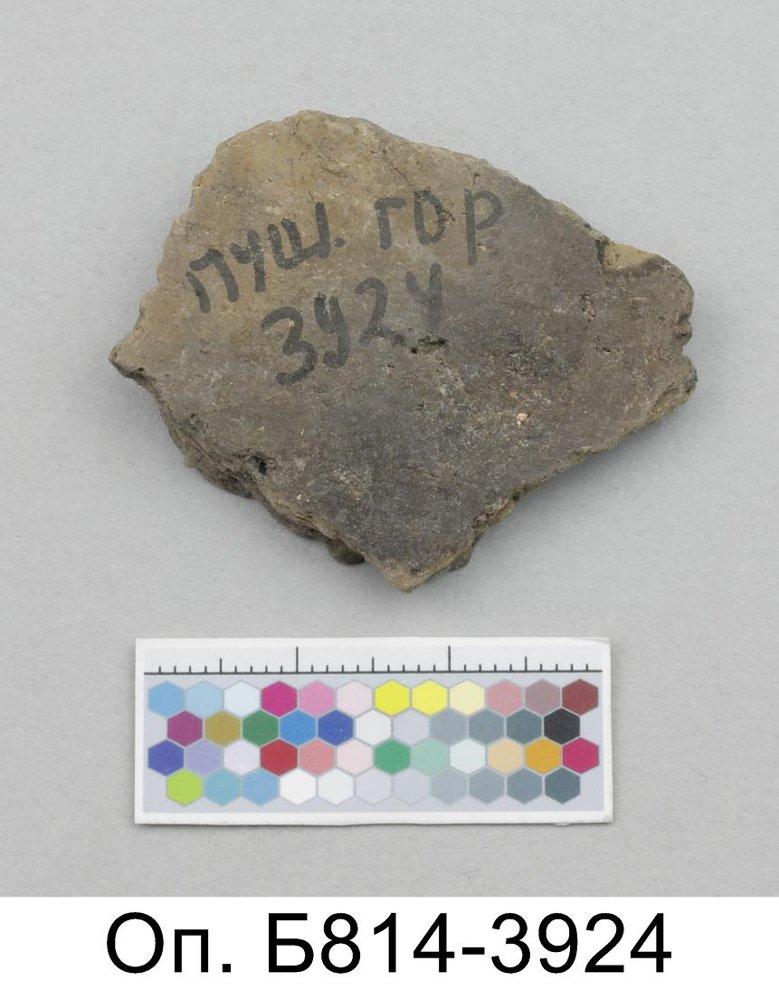 ПУШ. ГОР
3924
Оп. Б814-3924